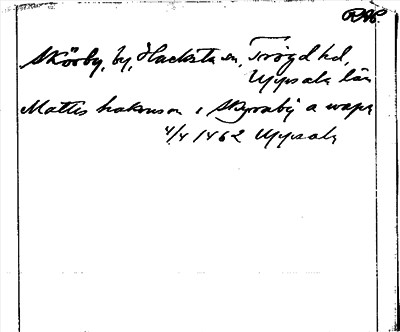 RAP.
Skörby, by, Hacksta sn, Trögd hd,
Uppsala län
Mattis hakonson i Skyrraby a wapn
4/4 1462 Uppsala